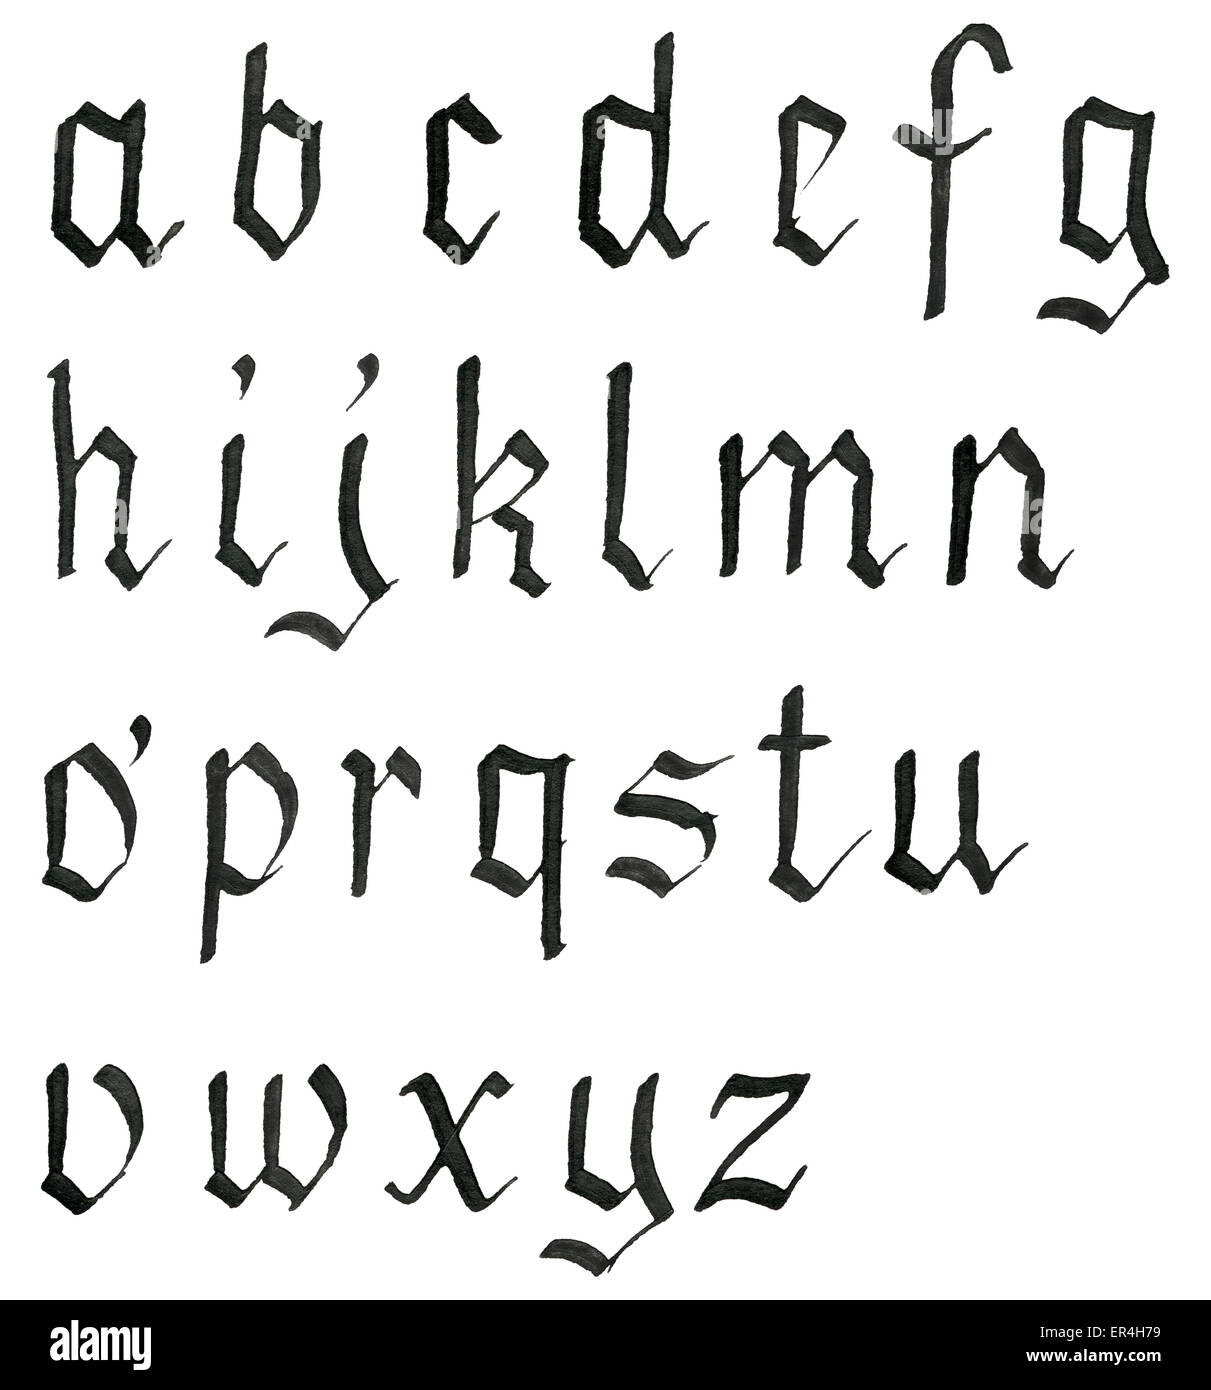 a b c d e f g
h i j k l m n
o' p r q s t u
v w x y z
alamy
Image ID: ER4H79
www.alamy.com